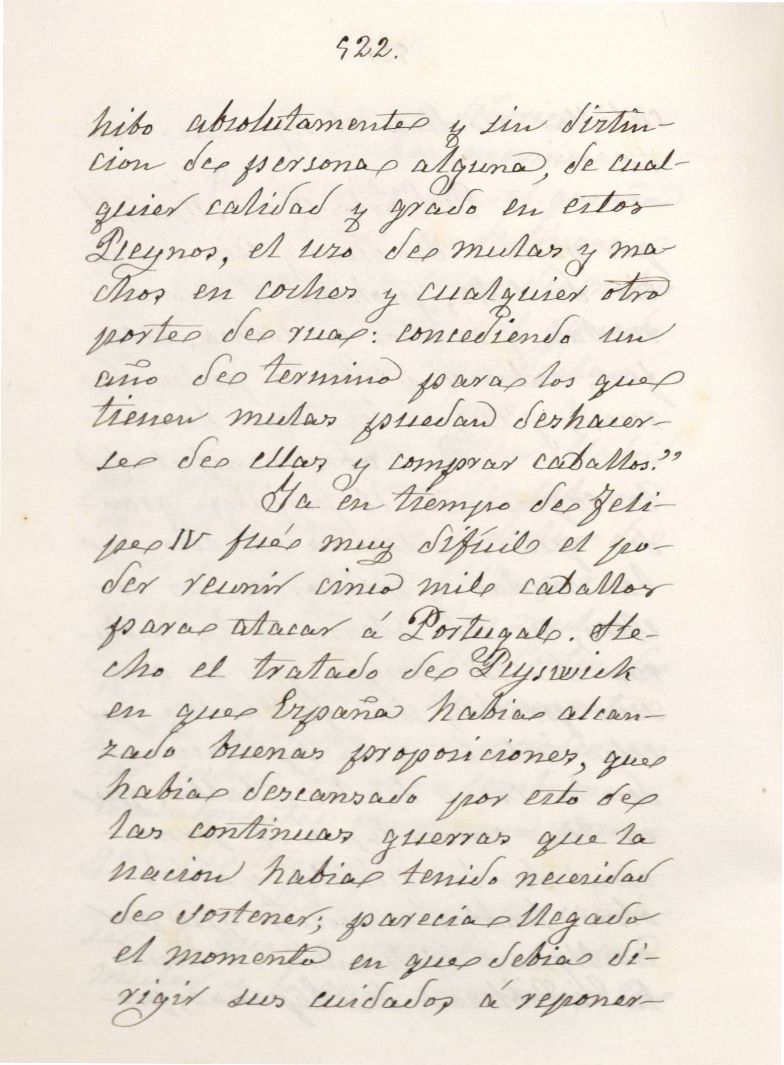 522.
hibo absolutamente y sin distin-
cion de persona alguna, de cual-
quier calidad y grado en estos
Reynos, el uso de mulas y ma-
chos en coches y cualquier otro
porte de rua: concediendo un
año de termino para los que
tienen mulas puedan deshacer-
se de ellas y comprar caballos."
Ya en tiempo de Feli-
pe IV fué muy difícil el po-
der reunir cinco mil caballos
para atacar á Portugal. He-
cho el tratado de Ryswick
en que España habia alcan-
zado buenas proposiciones, que
habia descansado por esto de
las continuas guerras que la
nacion habia tenido necesidad
de sostener; parecia llegado
el momento en que debia di-
rigir sus cuidados á reponer-